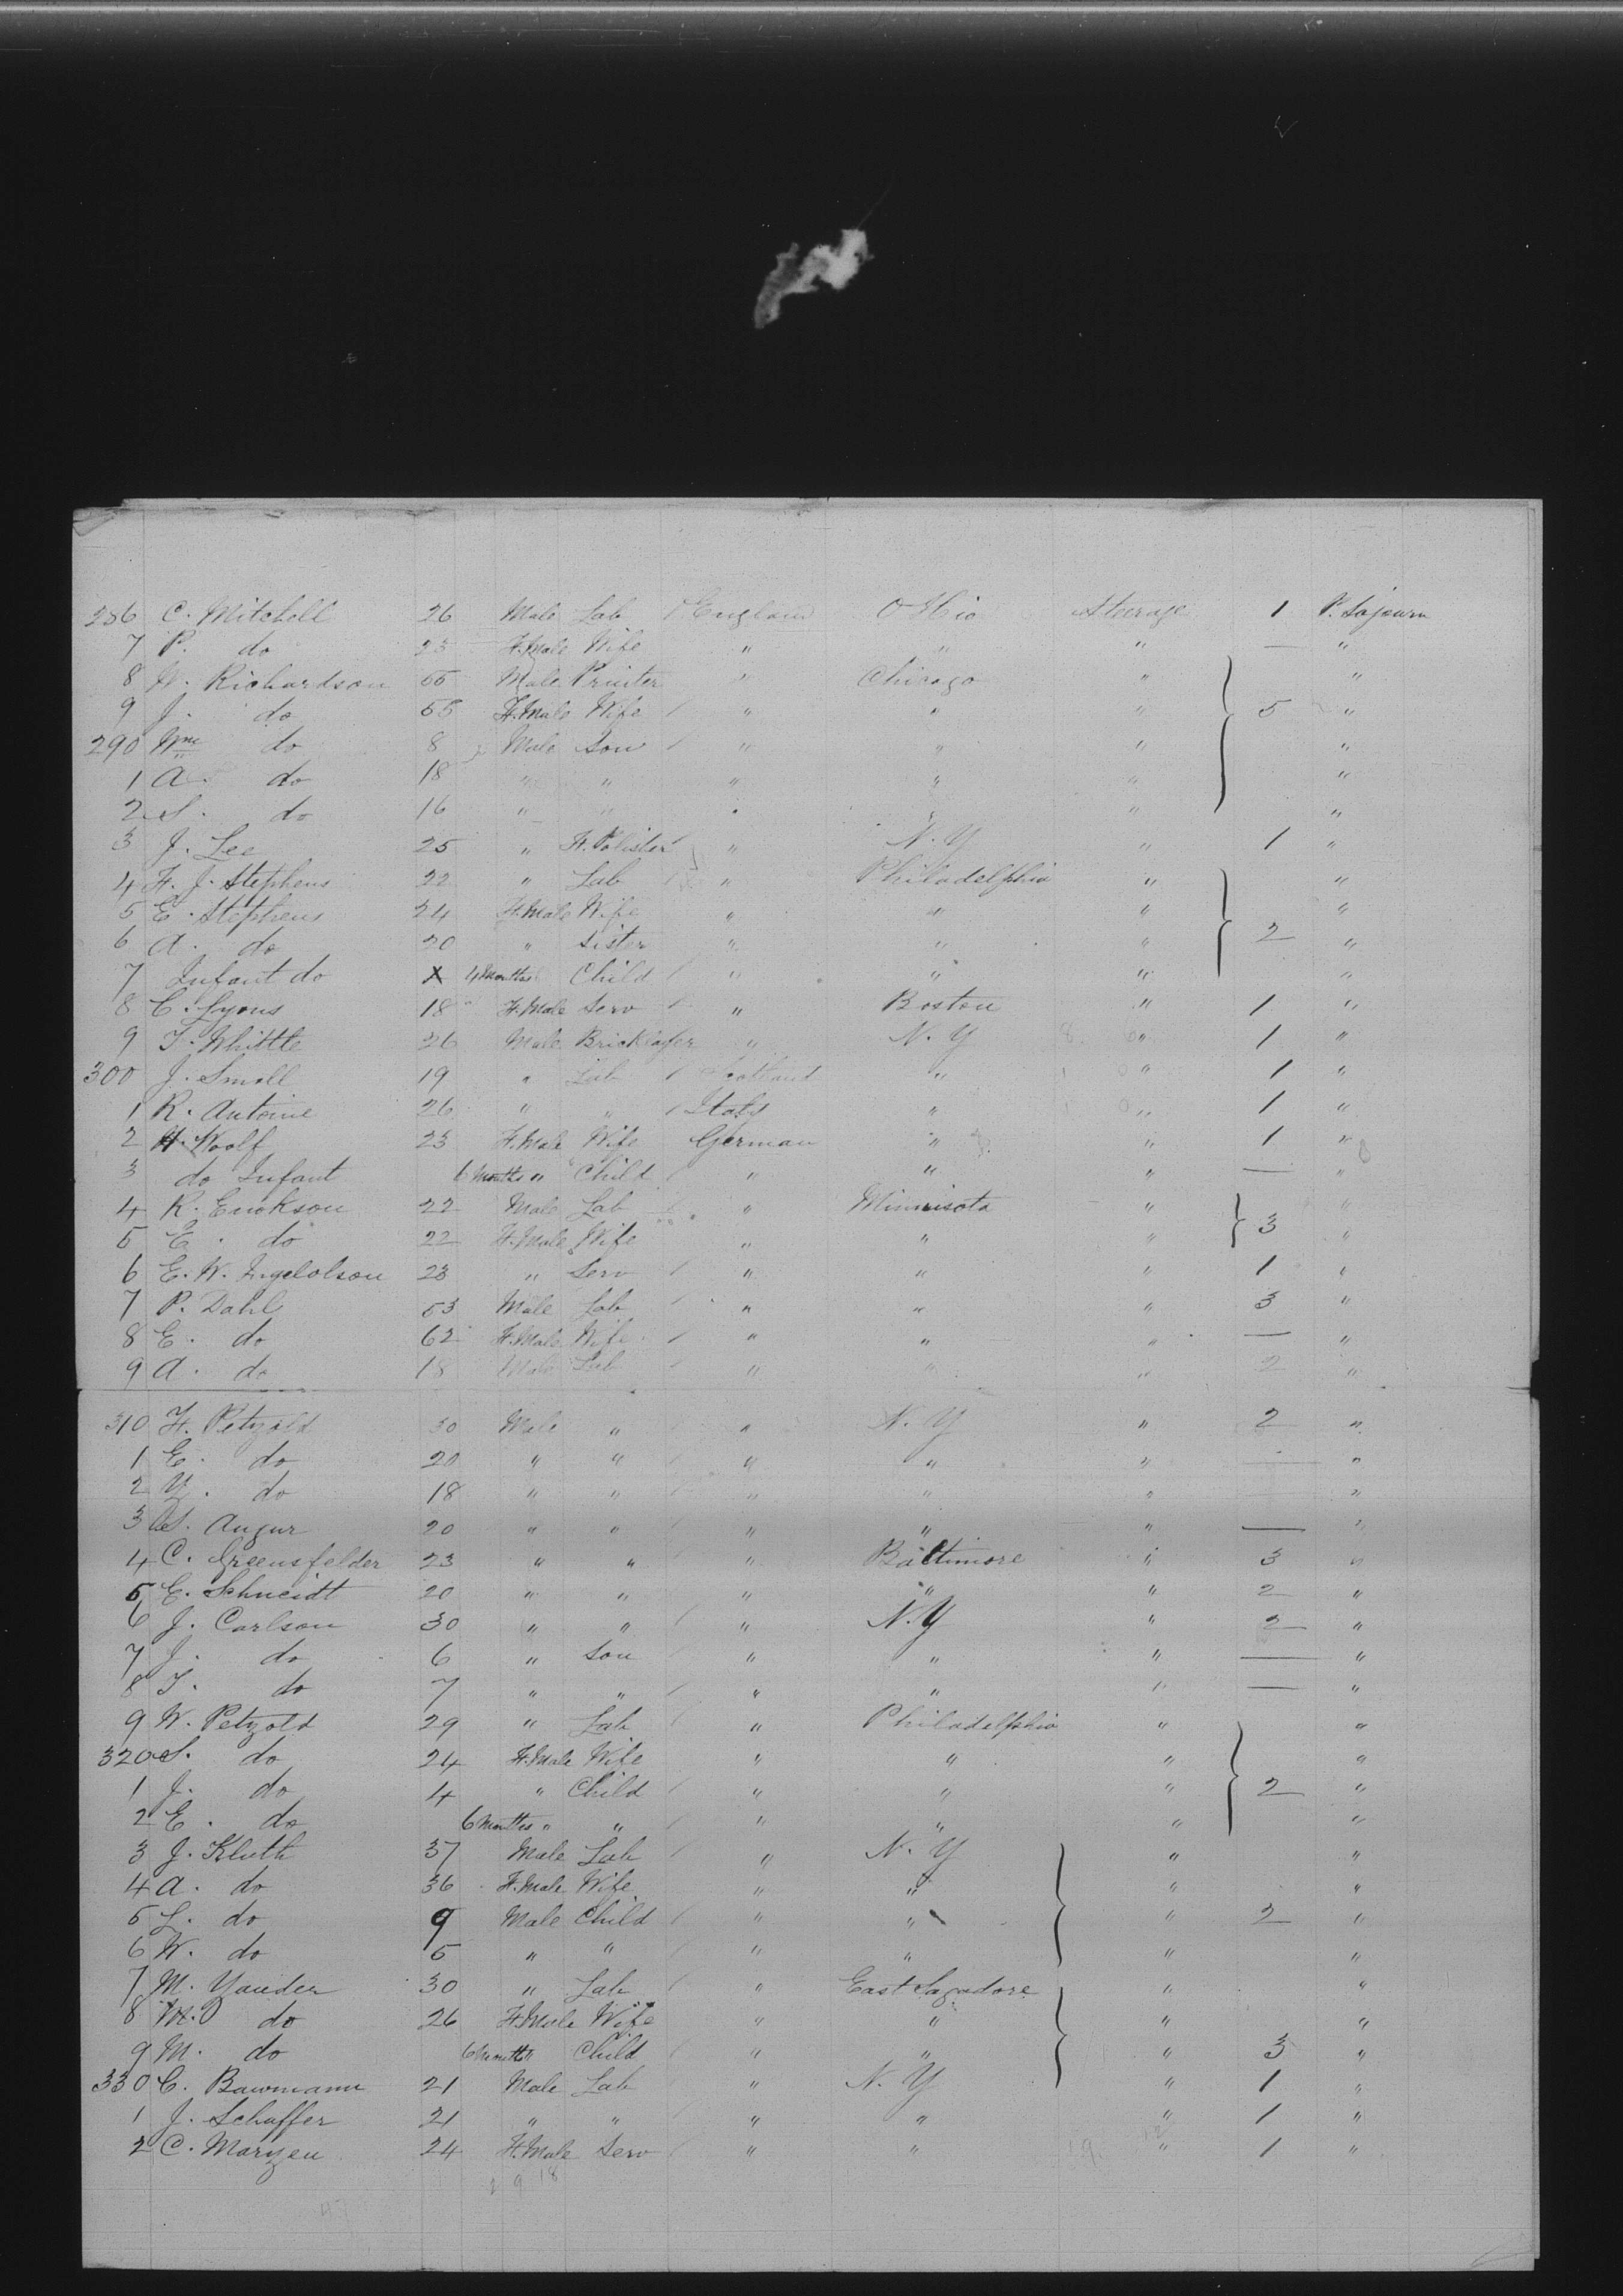 286 C. Mitchell 26 Male Lab England Ohio Steerage 1 P. Sojourn
7 P. do 23 F.Male Wife " " " — "
8 W. Richardson 55 Male Printer " Chicago " "
9 J. do 55 F.Male Wife " " " 5 "
290 Wm do 8 Male Son " " " "
1 A. do 18 " " " " " "
2 S. do 16 " " " " " "
3 J. Lee 25 " F. Polisher " N. Y " 1 "
4 F. J. Stephens 22 " Lab " Philadelphia " "
5 E. Stephens 24 F.Male Wife " " " "
6 A. do 20 " Sister " " " 2 "
7 Infant do X 4 Months Child " " " "
8 C. Lyons 18 F.Male Serv " Boston " 1 "
9 T. Whittle 26 Male Bricklayer " N. Y " 1 "
300 J. Small 19 " Lab Scotland " " 1 "
1 R. Antoine 26 " " Italy " " 1 "
2 H. Woolf 23 F.Male Wife German " " 1 "
3 do Infant 6 Months " Child " " " — "
4 R. Erickson 22 Male Lab " Minnisota " "
5 E. do 22 F.Male Wife " " " 3 "
6 E. W. 23 " Serv " " " 1 "
7 P. Dahl 53 Male Lab " " " 3 "
8 E. do 62 F.Male Wife " " " — "
9 A. do 18 Male Lab " " " 2 "
310 H. Petzold 30 Male " " N. Y " 2 "
1 E. do 20 " " " " " — "
2 Y. do 18 " " " " " — "
3 S. Augur 20 " " " " " — "
4 C. Greensfelder 23 " " " Baltimore " 3 "
5 E. Schneidt 20 " " " " " 2 "
6 J. Carlson 30 " " " N. Y " 2 "
7 J. do 6 " Son " " " — "
8 T. do 7 " " " " " — "
9 W. Petzold 29 " Lab " Philadelphia " "
320 S. do 24 F.Male Wife " " " "
1 J. do 4 " Child " " " 2 "
2 E. do 6 Months " " " " " "
3 J. Kluth 37 Male Lab " N. Y " "
4 A. do 36 F.Male Wife " " " "
5 L. do 9 Male Child " " " 2 "
6 W. do 5 " " " " " "
7 M. Yauder 30 " Lab " East " "
8 M. do 26 F.Male Wife " " " "
9 M. do 6 Months " Child " " " 3 "
330 C. Bawmann 21 Male Lab " N. Y " 1 "
1 J. Schaffer 21 " " " " " 1 "
2 C. Maryen 24 F.Male Serv " " " 1 "